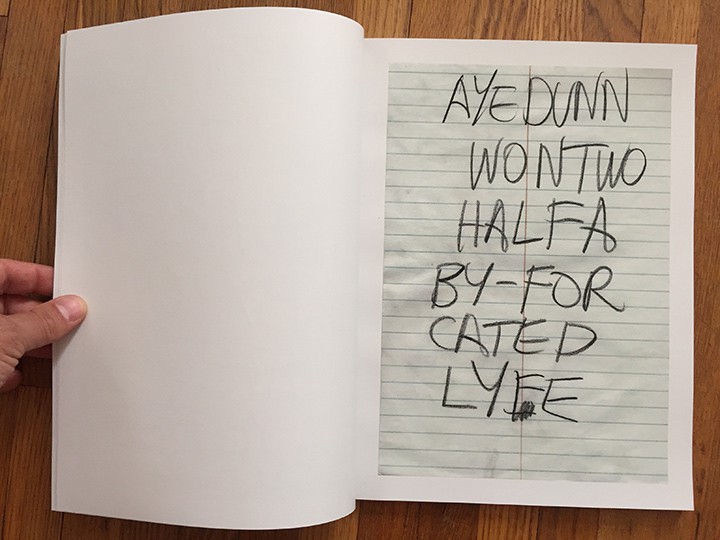 AYEDUNN
WONTWO
HALFA
BY-FOR
CATED
LYFE